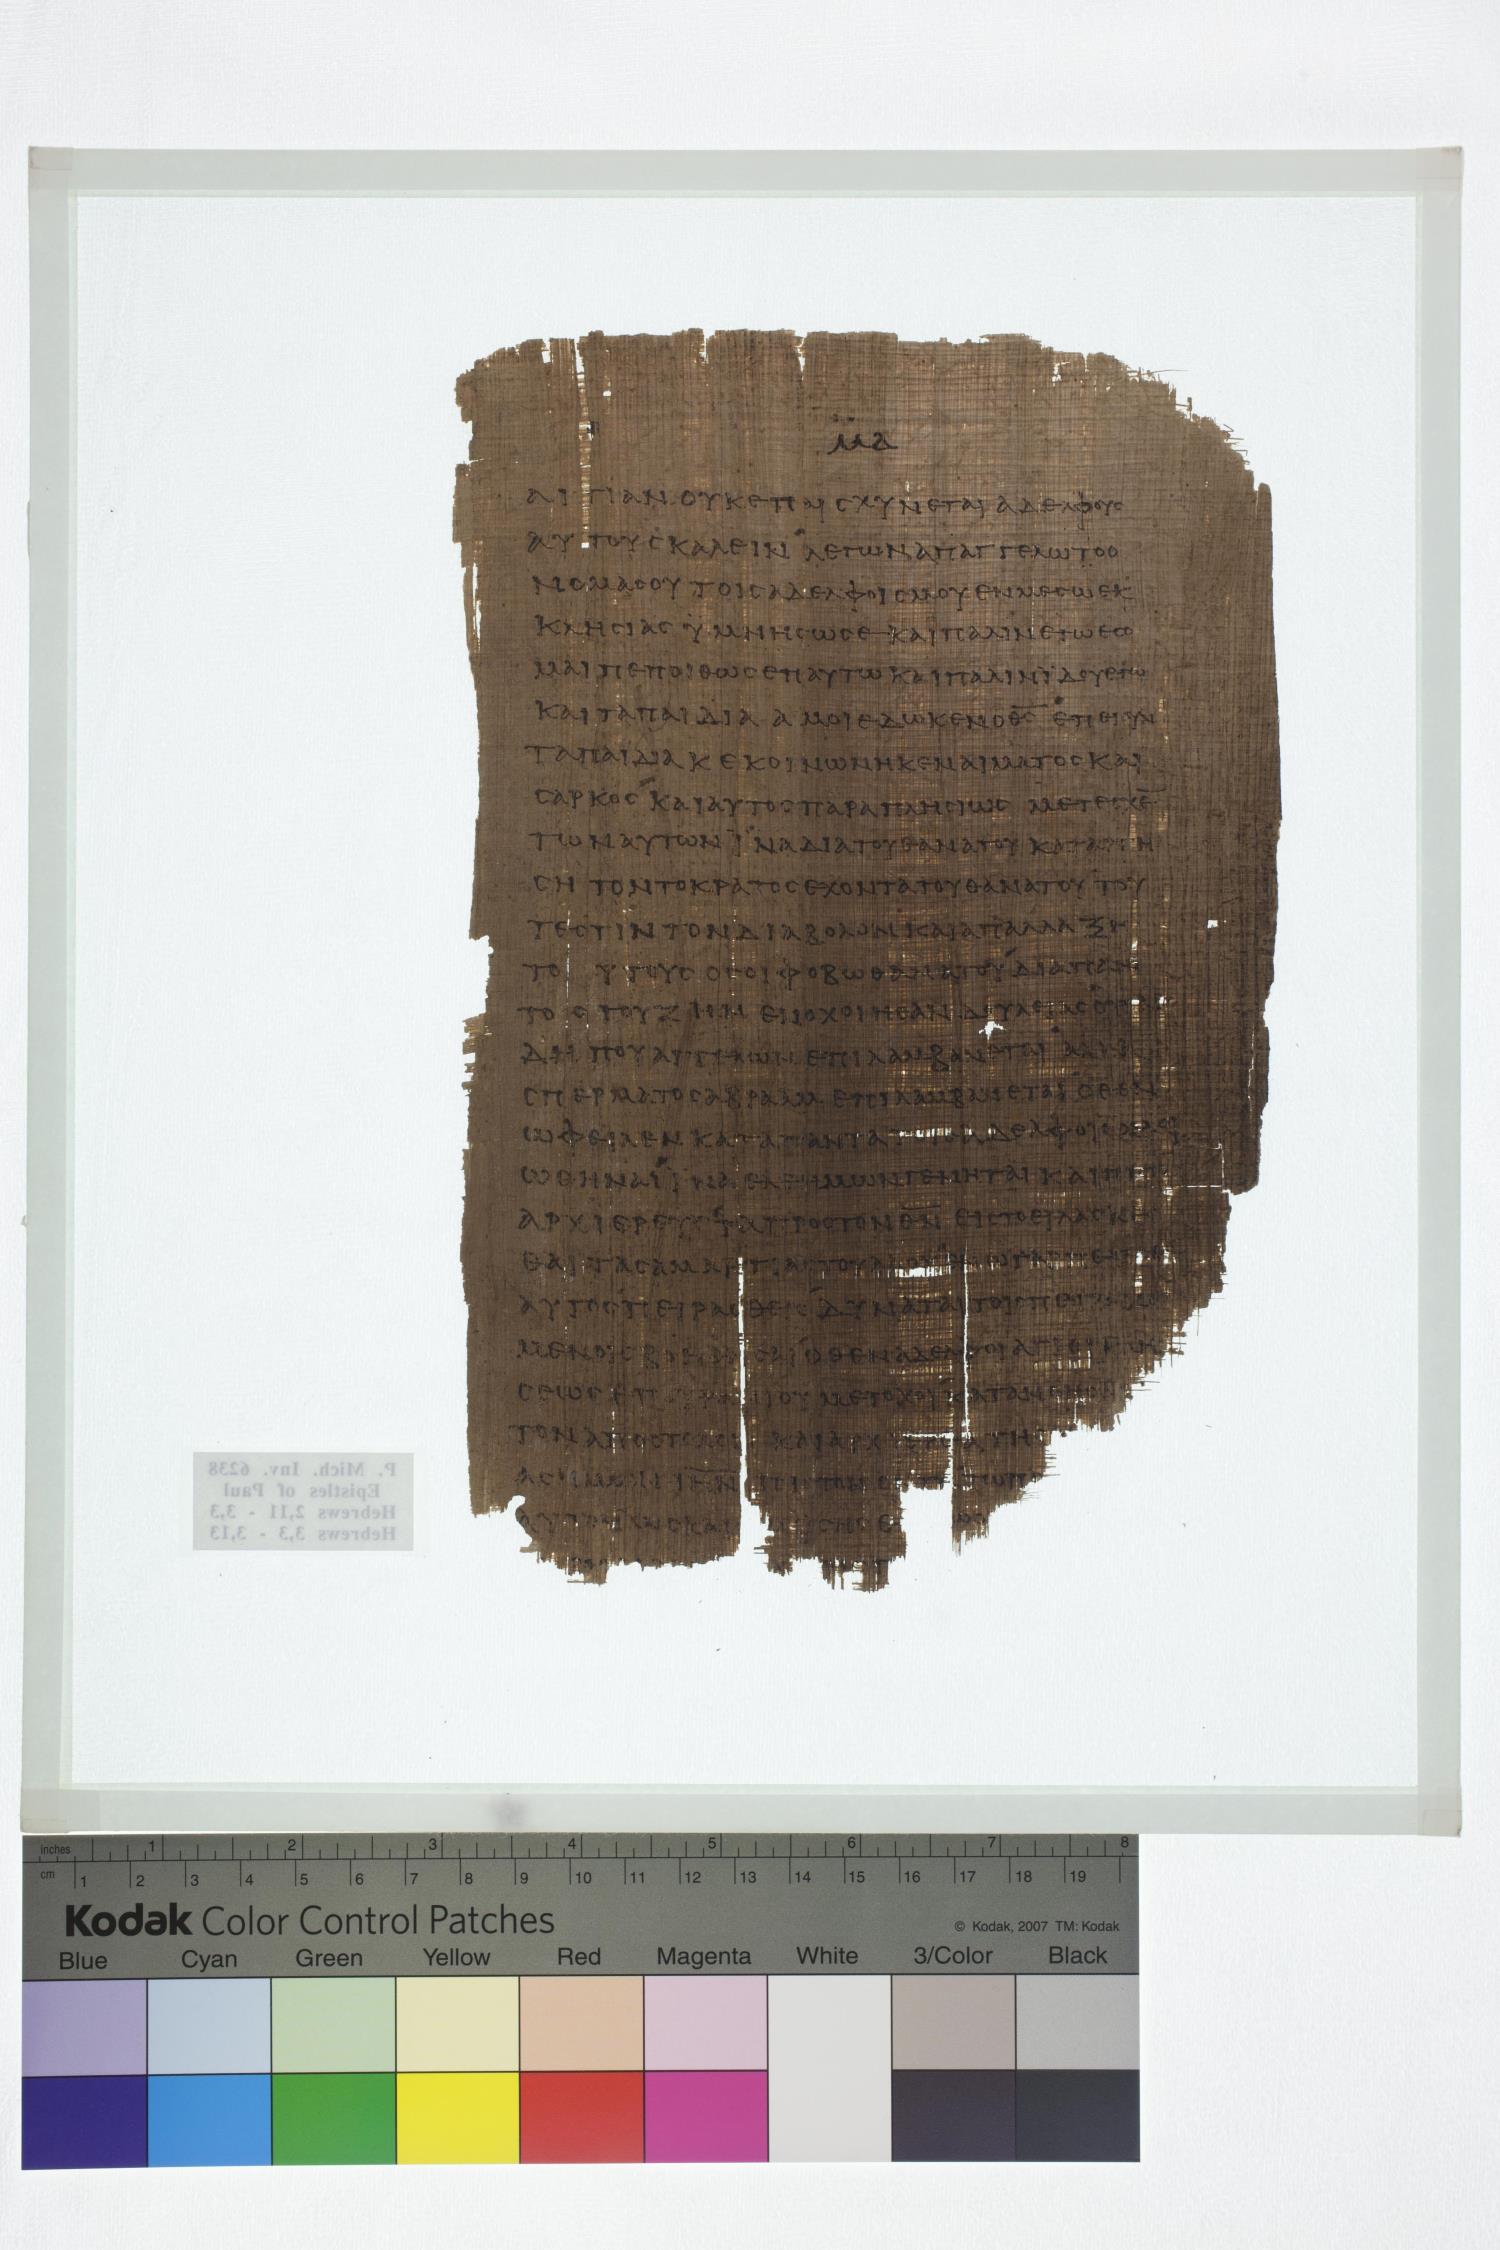 μα
αιτιανουκεπαισχυνεταιαδελφους
αυτουσκαλεινλεγωναπαγγελωτοο
νομασουτοισαδελφοισμουενμεσωεκ
κλησιασϋμνησωσεκαιπαλινεγωεσο
μαιπεποιθωσεπαυτωκαιπαλινϊδουεγω
καιταπαιδιααμοιεδωκενοθσεπειουν
ταπαιδιακεκοινωνηκεναιματοσκαι
σαρκοσκαιαυτοσπαραπλησιωσμετεσχε
τωναυτωνϊναδιατουθανατουκαταργη
σητοντοκρατοσεχοντατουθανατουτου
τεστιντονδιαβολονκαιαπαλλαξη
το υτουσοσοιφοβωθανατουδιαπαν
τοστουζηνενοχοιησανδουλειασου
δηπουαγγελωνεπιλαμβανεταιαλλα
σπερματοσαβρααμεπιλαμβανεταιοθεν
ωφειλενκαταπαντα αδελφοισομοι
ωθηναιϊναελεημωνγενηταικαιπισ
αρχιερευσταπροστονθνειστοειλασκεσ
θαιτασαμαρτιαστουλαου πεπον
αυτοσπειρασθεισδυναταιτοισπειραζο
μενοισβοηθησαιοθεναδελφοιαγιοικλη
σεωσεπ ιουμετοχοικατανοησα
τοναποστολονκαιαρχιερεατησ
ασ ιην
αυτον ωσκαι σησε
P. Mich. Inv. 6238
Epistles of Paul
Hebrews 2,11 - 3,3
Hebrews 3,3 - 3,13
inches 1 2 3 4 5 6 7 8
cm 1 2 3 4 5 6 7 8 9 10 11 12 13 14 15 16 17 18 19
Kodak Color Control Patches © Kodak, 2007 TM: Kodak
Blue Cyan Green Yellow Red Magenta White 3/Color Black